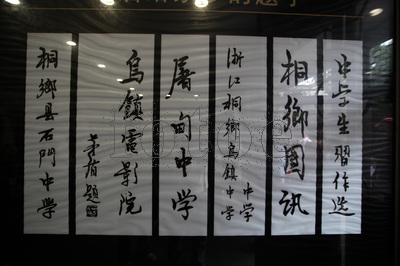 中学生習作选
桐鄉図訊
浙江桐鄉烏镇中学
中学
屠甸中学
烏鎮電影院
茅盾題
桐鄉县石門中學